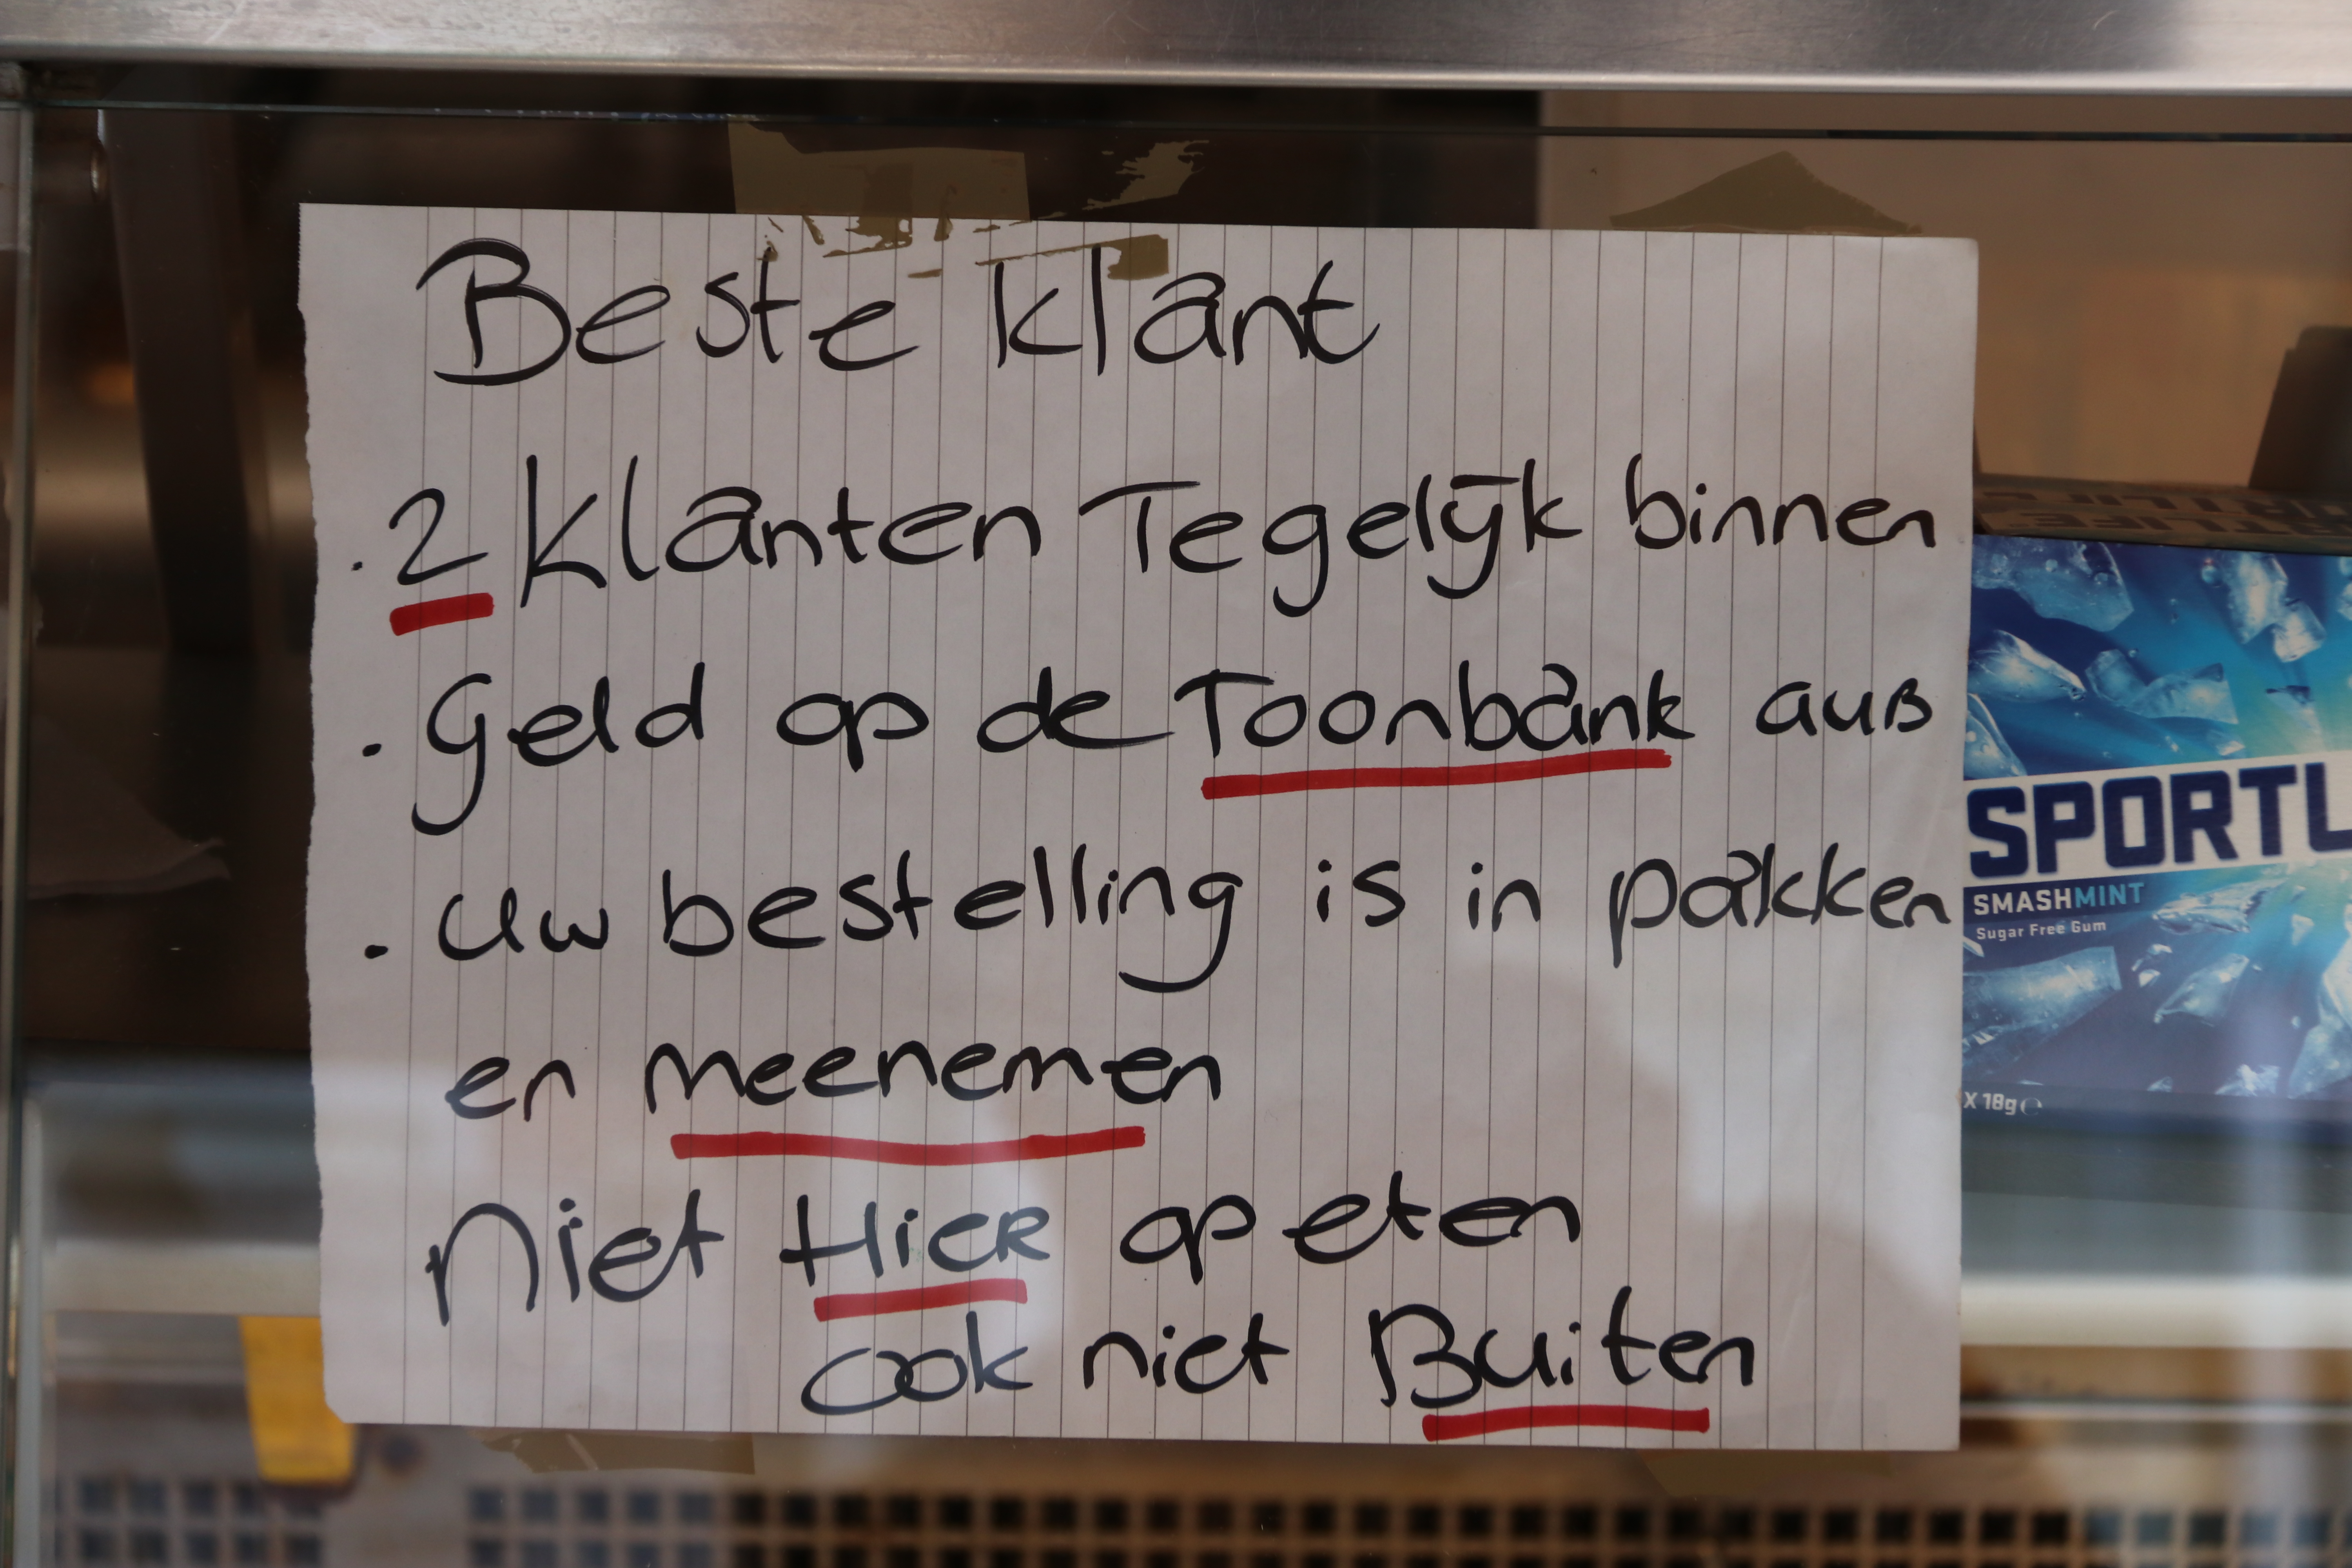 Beste klant
. 2 klanten Tegelijk binnen
. Geld op de Toonbank aub
. Uw bestelling is in pakken
en meenemen
niet Hier op eten
ook niet Buiten
SPORTL
SMASHMINT
Sugar Free Gum
X 18g ℮